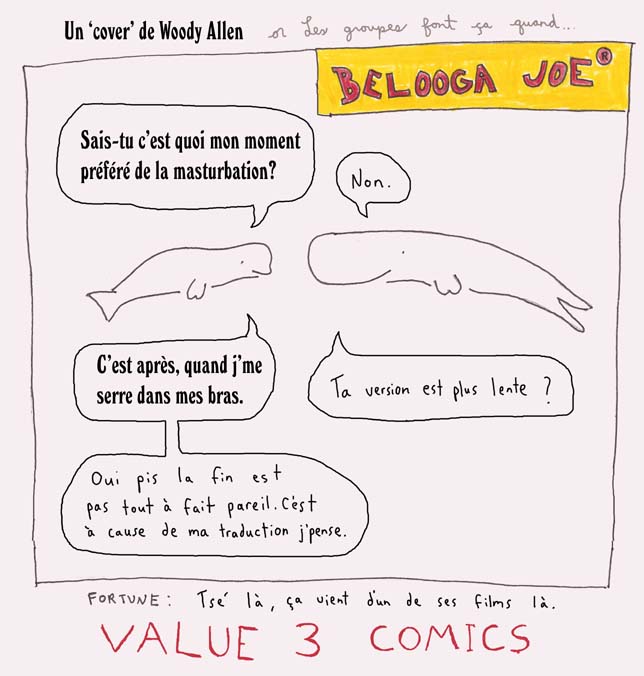 Un ‘cover’ de Woody Allen or Les groupes font ça quand...
BELOOGA JOE®
Sais-tu c’est quoi mon moment
préféré de la masturbation?
Non.
C’est après, quand j’me
serre dans mes bras.
Ta version est plus lente ?
Oui pis la fin est
pas tout à fait pareil. C'est
à cause de ma traduction j'pense.
FORTUNE: Tsé là, ça vient d'un de ses films là.
VALUE 3 COMICS